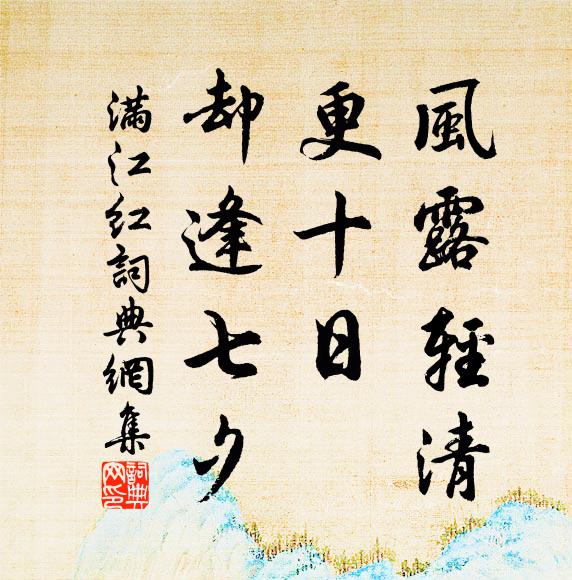 風露輕清
更十日
却逢七夕
满江红詞典網集
詞典
网印